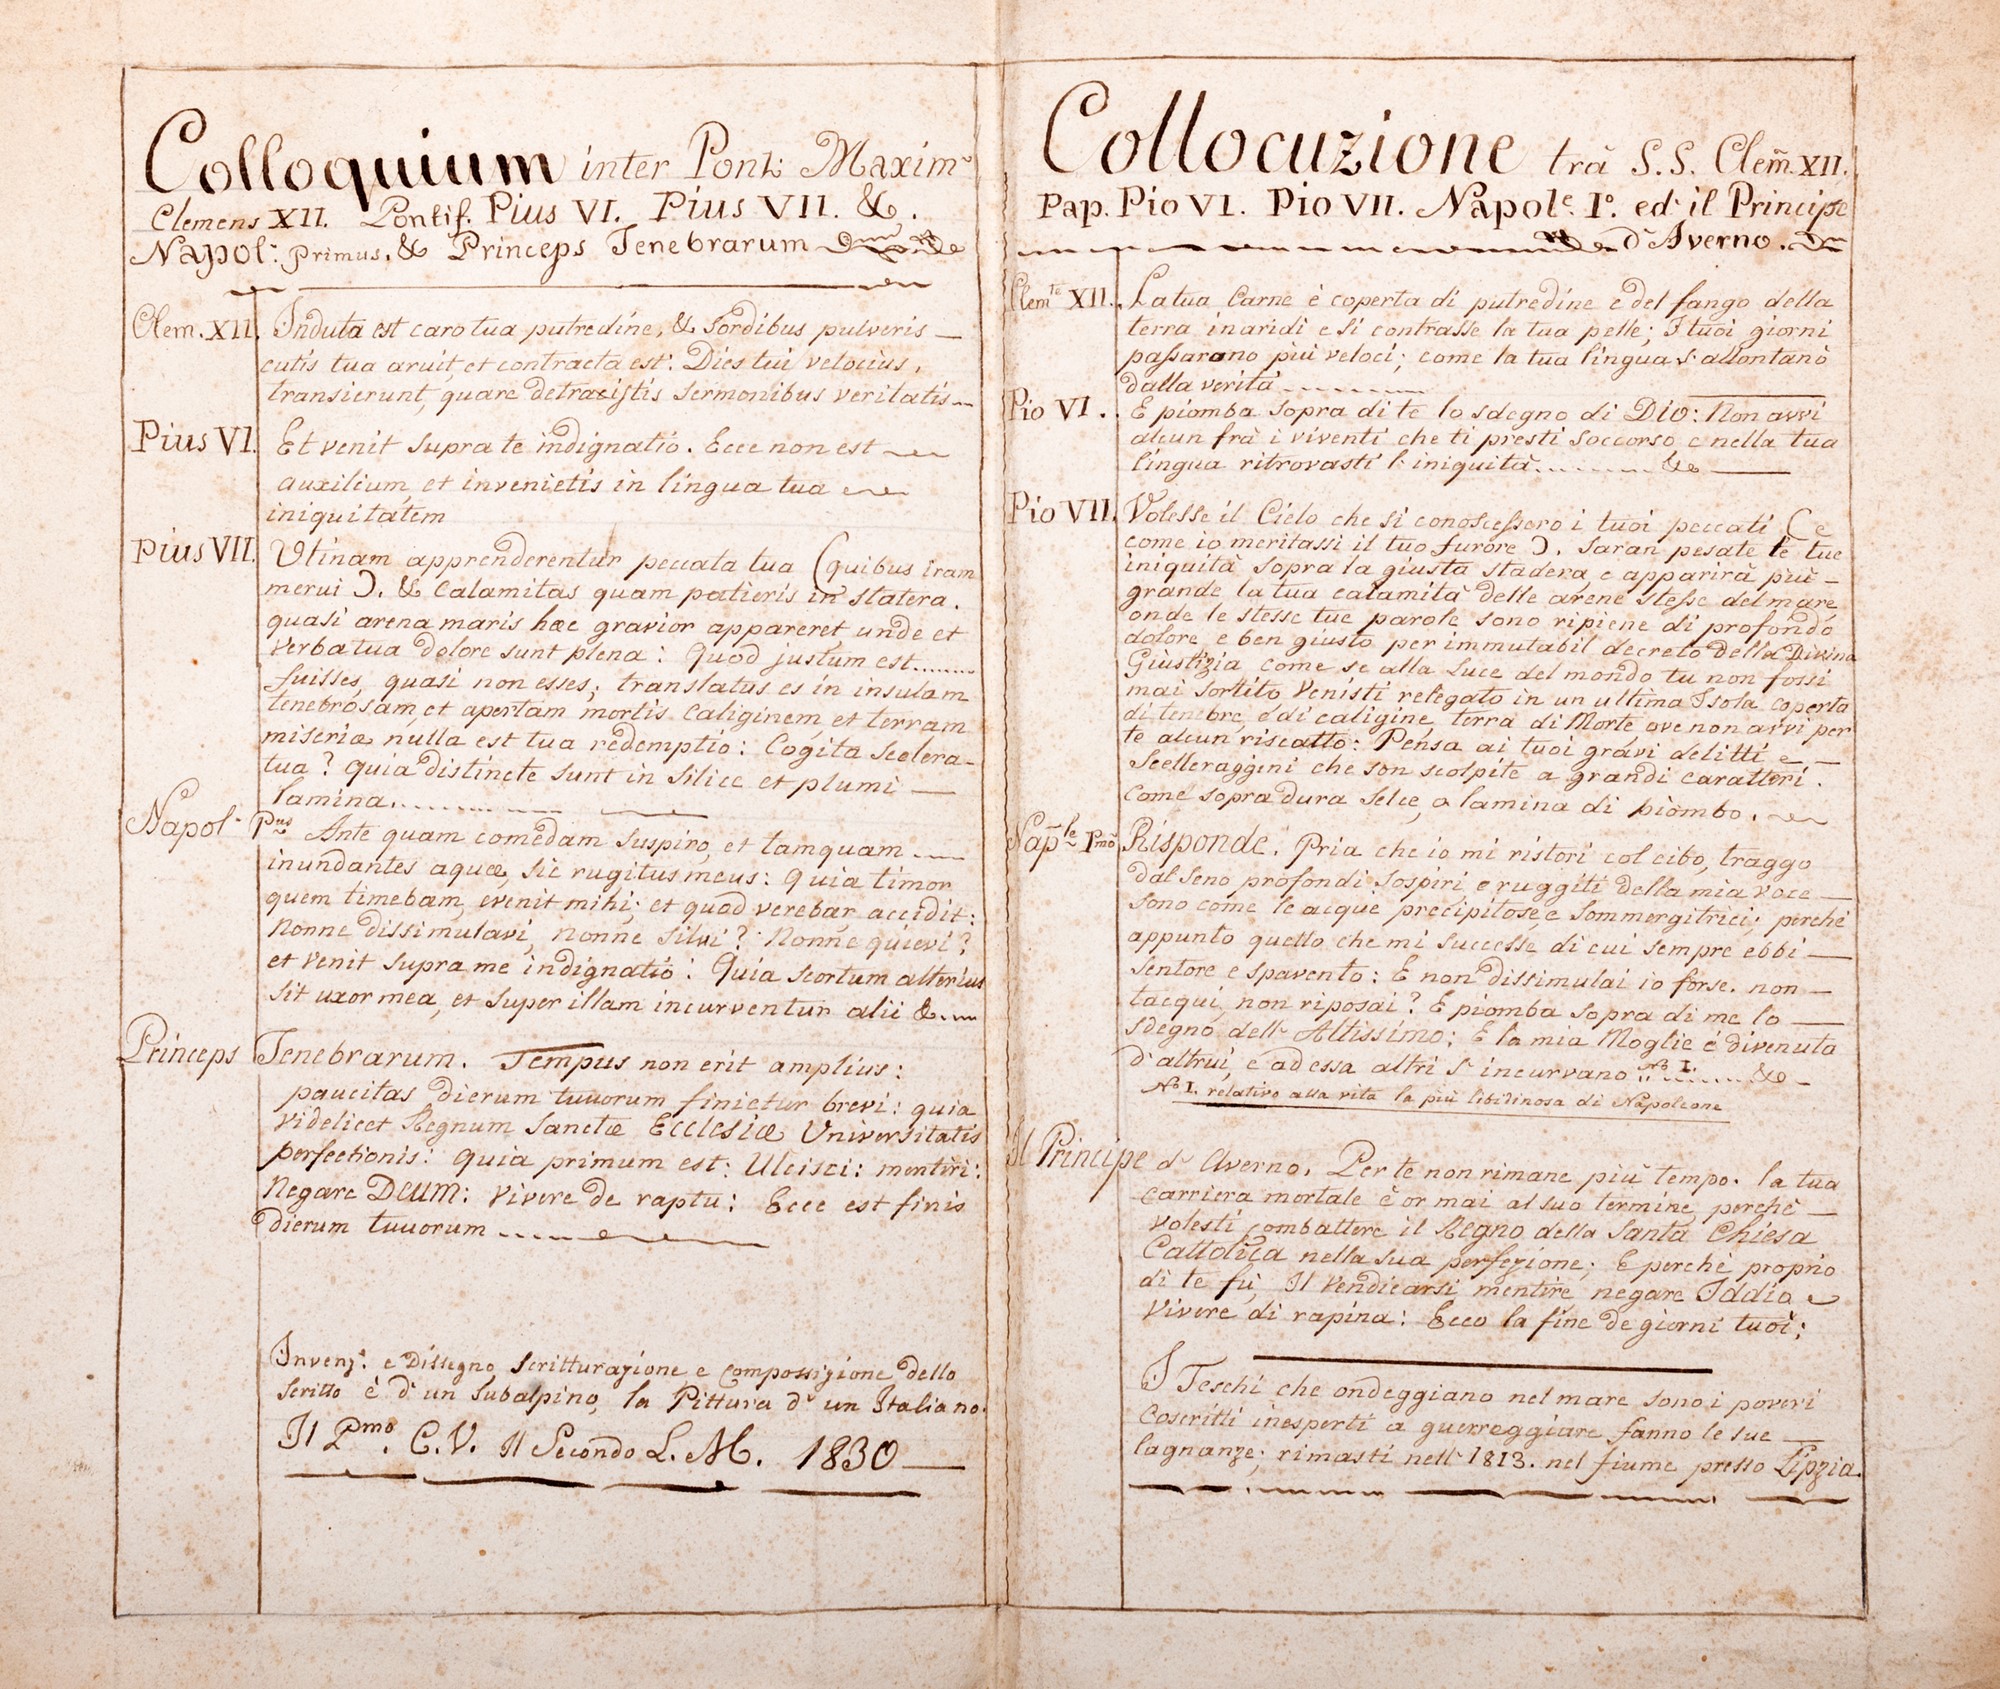 Colloquium inter Pont: Maxim~
Clemens XII. Pontif. Pius VI. Pius VII. &.
Napol: Primus. & Princeps Tenebrarum
Clem. XII. Induta est caro tua putredine, & sordibus pulveris —
cutis tua aruit, et contracta est: Dies tui velocius,
transierunt, quare detracistis sermonibus veritatis
Pius VI. Et venit supra te indignatio. Ecce non est
auxilium, et invenietis in lingua tua
iniquitatem
Pius VII. Utinam apprenderentur peccata tua (quibus iram
merui). & Calamitas quam patieris in statera.
quasi arena maris hæc gravior appareret unde et
verba tua dolore sunt plena: Quod justum est.......
fuisses, quasi non esses; translatus es in insulam
tenebrosam, et apertam mortis caliginem, et terram
miseriæ nulla est tua redemptio: Cogita scelera-
tua? quia distincte sunt in silice et plumi —
lamina..........
Napol. Pus Ante quam comedam suspiro, et tamquam ....
inundantes aquæ, sic rugitus meus: Quia timor
quem timebam, evenit mihi; et quod verebar accidit:
Nonne dissimulavi, nonne silui? Nonne quievi?
et venit supra me indignatio: Quia scortum alterius
sit uxor mea, et super illam incurventur alii &....
Princeps Tenebrarum. Tempus non erit amplius:
paucitas dierum tuuorum finietur brevi: quia
videlicet Regnum Sanctæ Ecclesiæ Universitatis
perfectionis: quia primum est: Ulcisci: mentiri:
Negare Deum: vivere de raptu: Ecce est finis
dierum tuuorum ....
Invenz: e Dissegno, Scritturazione e Compossizione dello
scritto è d' un Subalpino, la Pittura d' un Italiano.
Il Pmo. C.V. Il Secondo L. M. 1830 —
Collocuzione trà S.S. Clem. XII.
Pap. Pio VI. Pio VII. Napole. Io. ed: il Principe
d'Averno.
Clemte XII. La tua Carne è coperta di putredine e del fango della
terra inaridì e si contrasse la tua pelle; I tuoi giorni
passarono più veloci; come la tua lingua s' allontanò
dalla verità ..........
Pio VI. E piomba sopra di te lo sdegno di Dio: Non avvi
alcun frà i viventi che ti presti soccorso e nella tua
lingua ritrovasti l' iniquità.......... &c
Pio VII. Volesse il Cielo che si conoscessero i tuoi peccati (e
come io meritassi il tuo furore). Saran pesate le tue
iniquità sopra la giusta stadera, e apparirà più —
grande la tua calamità delle arene stesse del mare,
onde le stesse tue parole sono ripiene di profondo
dolore e ben giusto per immutabil decreto della Divina
Giustizia come se alla luce del mondo tu non fossi
mai sortito Venisti relegato in un ultima Isola coperta
di tenebre, e di caligine, terra di Morte ove non avvi per
te alcun riscatto: Pensa ai tuoi gravi delitti e —
Scelleraggini che son scolpite a grandi caratteri.
come sopra dura selce, o lamina di piombo.
Naple Pmo Risponde. Pria che io mi ristori col cibo, traggo
dal seno profondi sospiri e ruggiti della mia voce —
sono come le acque precipitose, e sommergitrici; perché
appunto quello che mi successe, di cui sempre ebbi —
sentore e spavento: E non dissimulai io forse. non —
tacqui, non riposai? E piomba sopra di me lo —
sdegno dell' Altissimo; E la mia Moglie è divenuta
d'altrui, e ad essa altri s' incurvano No I. ........ &c —
No I. relativo alla vita la più libidinosa di Napoleone
Il Principe d' Averno. Per te non rimane più tempo. la tua
carriera mortale è or mai al suo termine, perchè —
volesti combattere il Regno della Santa Chiesa
Cattolica nella sua perfezione; E perchè proprio
di te fù, Il vendicarsi mentire negare Iddio e
vivere di rapina: Ecco la fine de giorni tuoi;
I Teschi che ondeggiano nel mare sono i poveri
Coscritti inesperti a guerreggiare fanno le sue —
lagnanze; rimasti nell' 1813. nel fiume presso Lipzia.